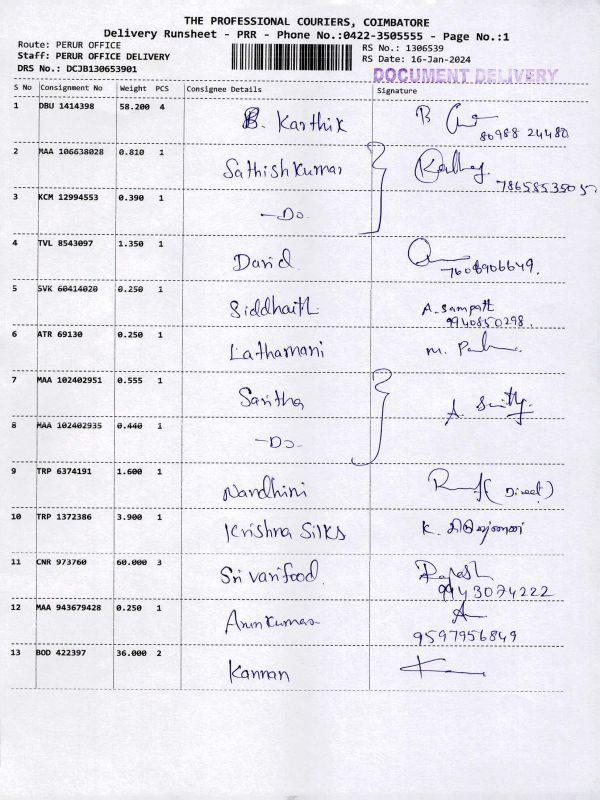 THE PROFESSIONAL COURIERS, COIMBATORE
Delivery Runsheet - PRR - Phone No.:0422-3505555 - Page No.:1
Route: PERUR OFFICE RS No.: 1306539
Staff: PERUR OFFICE DELIVERY RS Date: 16-Jan-2024
DRS No.: DCJB130653901 DOCUMENT DELIVERY
S No Consignment No Weight PCS Consignee Details Signature
1 DBU 1414398 58.200 4 B. Karthik B
80988 24480
2 MAA 106638028 0.810 1 Sathishkumar
7865853505
3 KCM 12994553 0.390 1 -Do.
4 TVL 8543097 1.350 1 David
7608906649.
5 SVK 60414020 0.250 1 Siddhaith A. Sampath
9940850298.
6 ATR 69130 0.250 1 Lathamani M.
7 MAA 102402951 0.555 1 Saritha A.
8 MAA 102402935 0.440 1 -Do.
9 TRP 6374191 1.600 1 Nandhini (Direct)
10 TRP 1372386 3.900 1 Krishna Silks K.
11 CNR 973760 60.000 3 Sri varifood. Rajesh
9943074222
12 MAA 943679428 0.250 1 Arunkumar A
9597956849
13 BOD 422397 36.000 2 Kannan